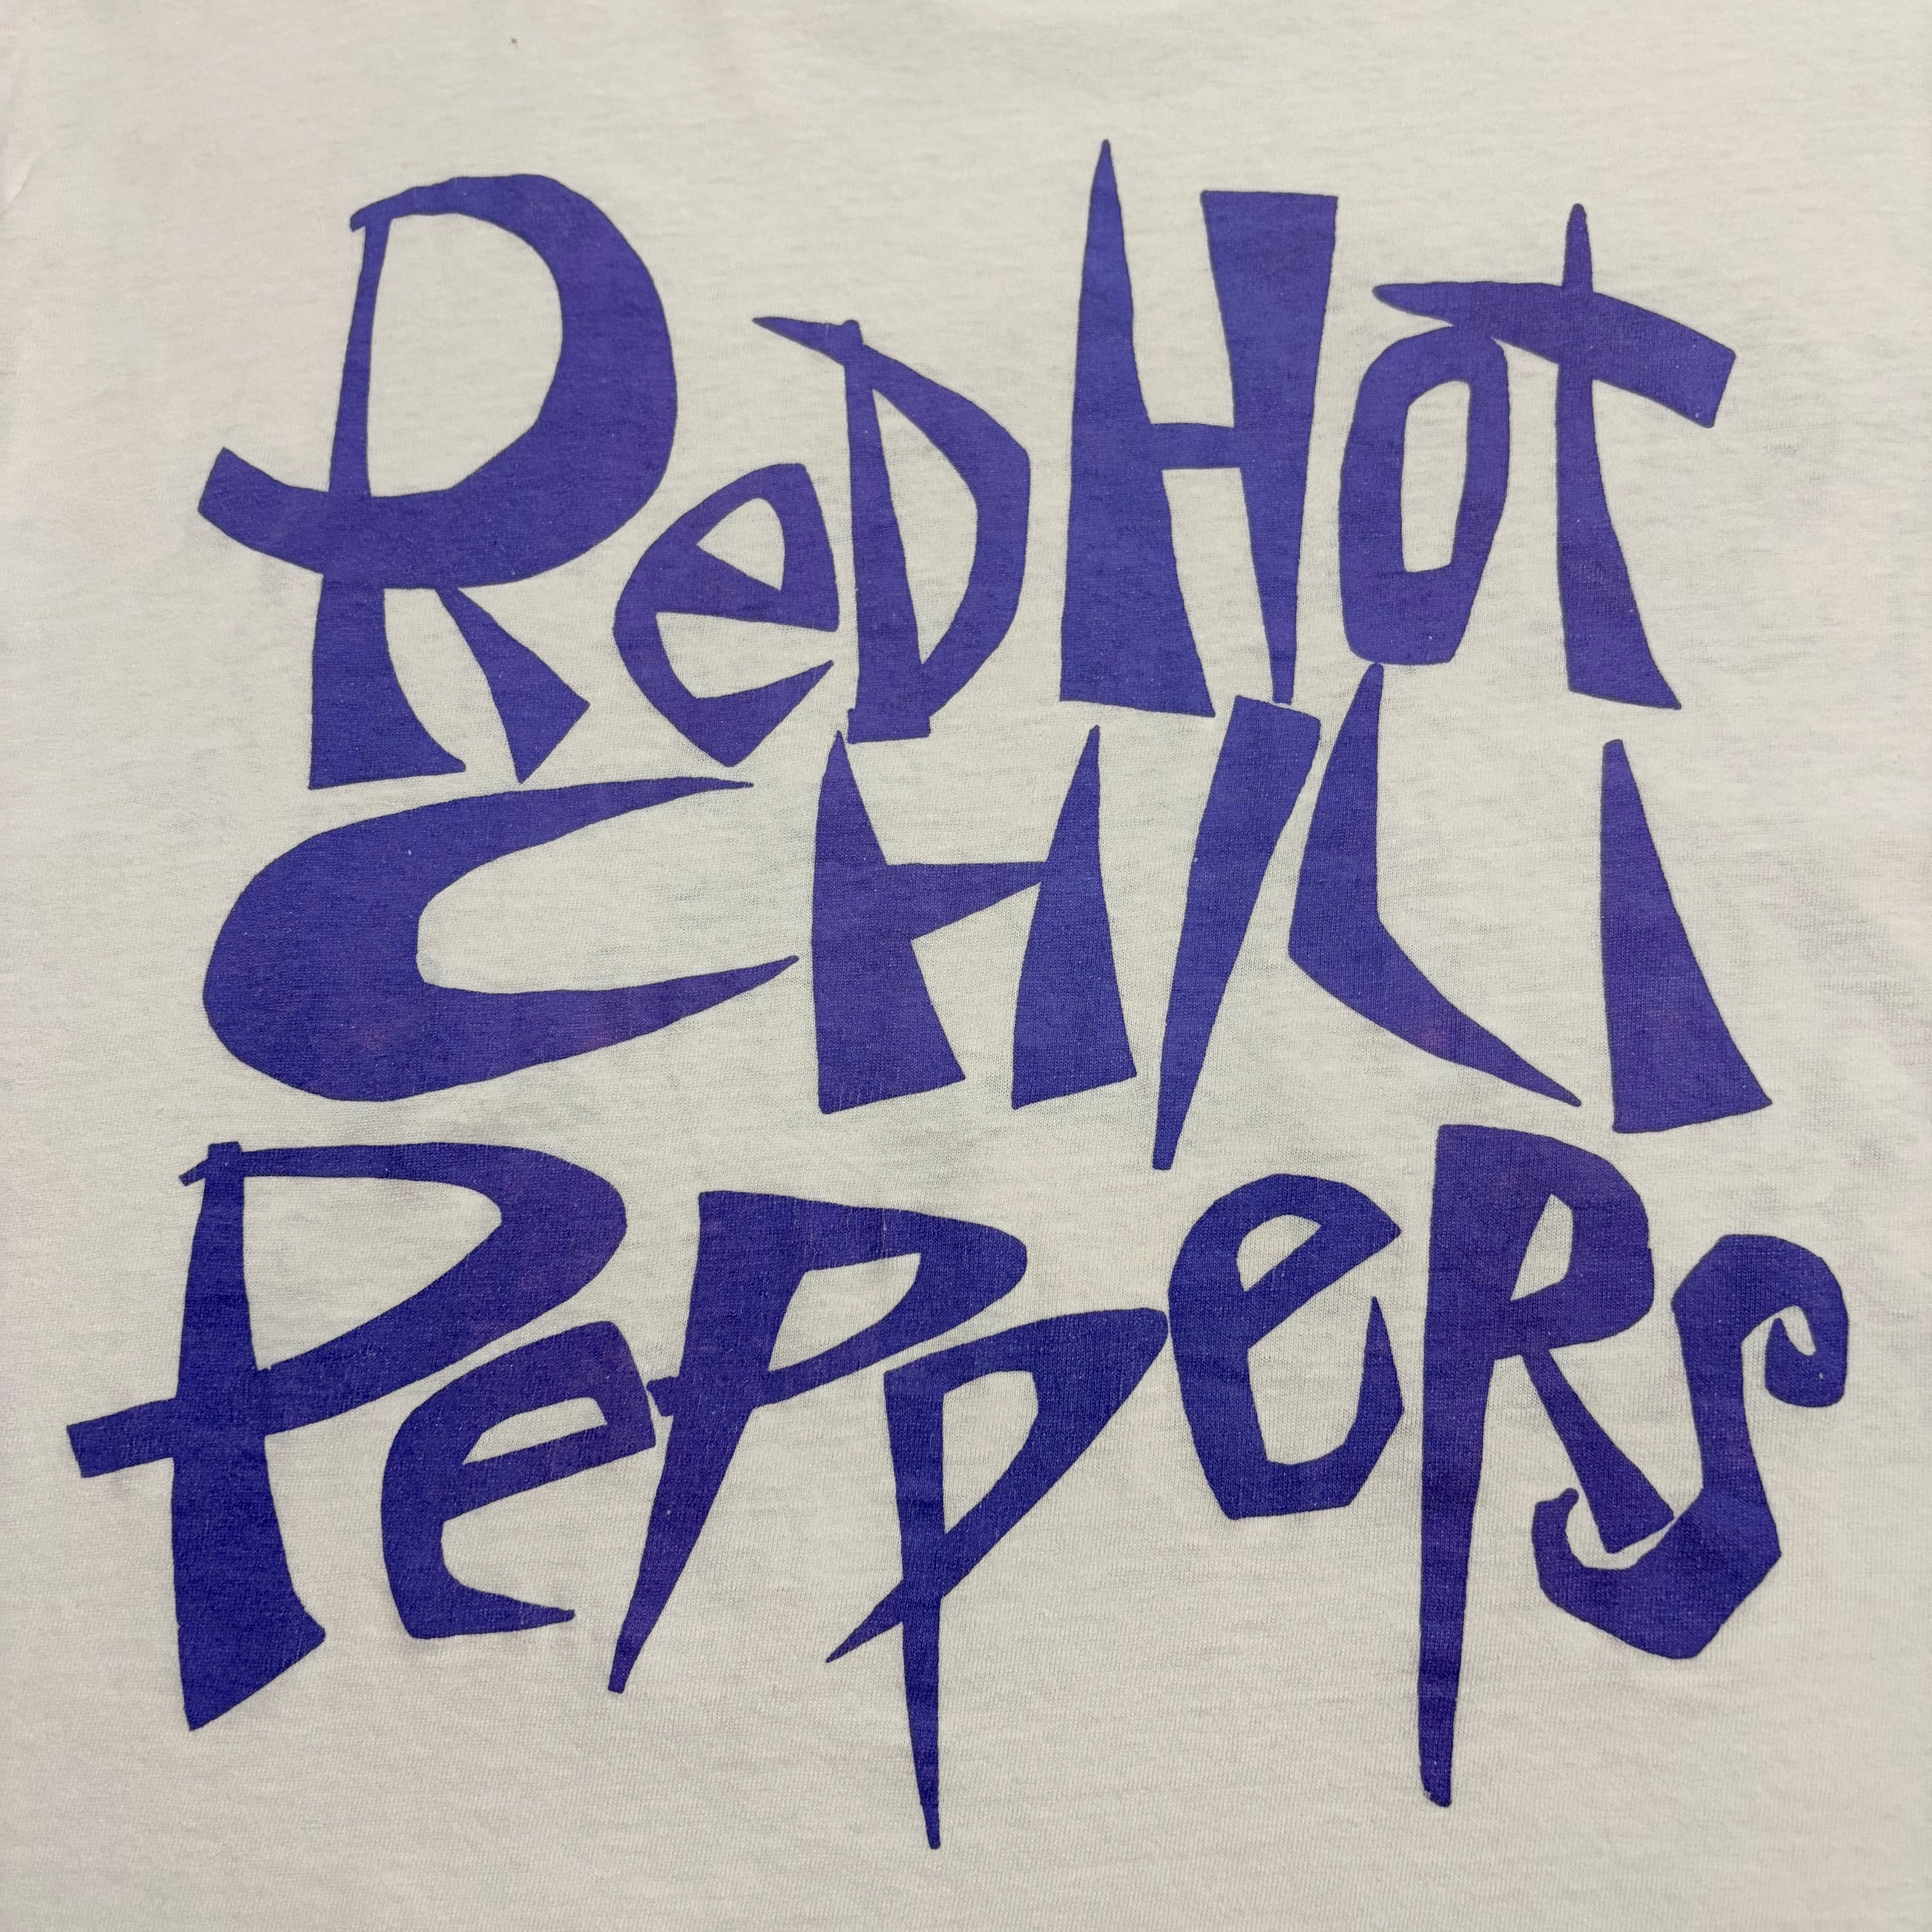 ReD HoT
CHILI
PePPeRS